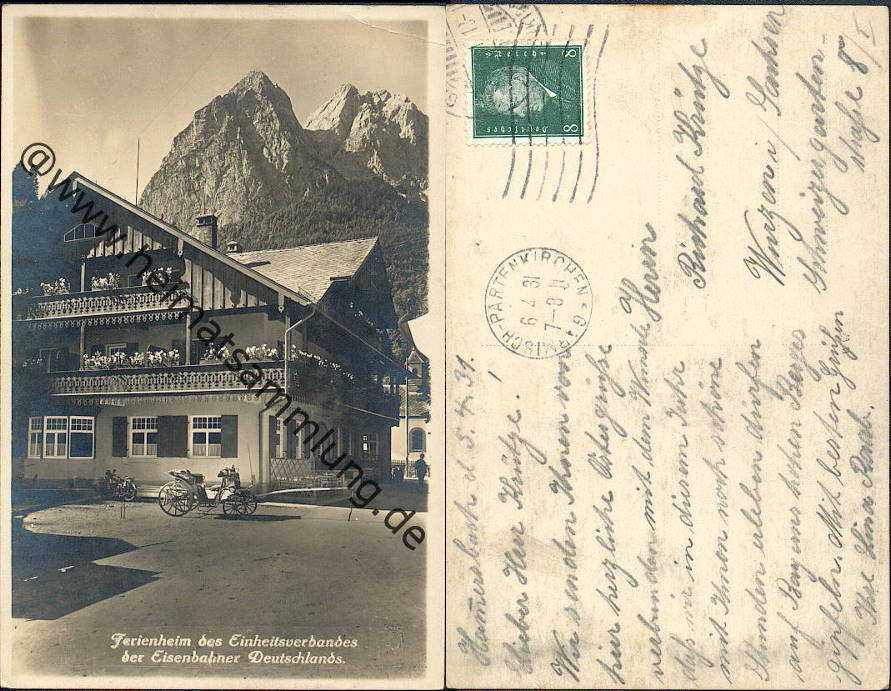 @www.heimatsammlung.de
Ferienheim des Einheitsverbandes
der Eisenbahner Deutschlands.
8 Deutsches 8
GARMISCH-PARTENKIRCHEN
6 4 31
7-8 N
Herrn
Richard Krütze
Wurzen i/ Sachsen
Schweizergarten-
straße 8/I
Hammersbach d. 5.4.31.
Lieber Herr Krütze.
Wir senden Ihnen von
hier herzliche Ostergrüße
verbunden mit dem Wunsche
daß wir in diesem Jahre
mit Ihnen noch schöne
Stunden erleben dürfen
auf Bayerns hohen Berges
gipfeln. Mit besten Grüßen
Ihre